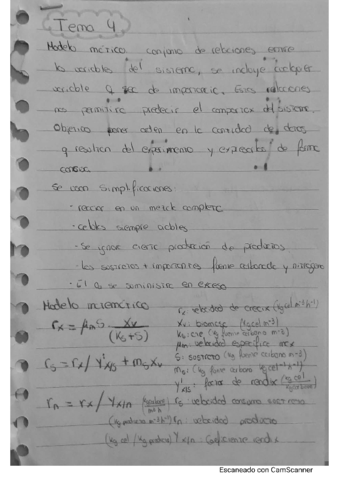 Tema 4
Modelo mático: conjunto de relaciones entre
las variables del sistema, se incluye cualquier
variable q sea de importancia. Estas relaciones
nos permitirá predecir el comportam del sistema.
Objetivo: poner orden en la cantidad de datos
q resultan del experimento y expresarlos de forma
concisa.
Se usan simplificaciones:
· reacción en un medio complejo
· células siempre activas
· Se ignora cierta producción de productos
· Los sustratos + importantes fuente carbonada y nitrógeno
· El se suministra en exceso
Modelo cinemático
rx = μm S Xv / (Ks+S)
rs = rx / Y'x/s + ms Xv
rn = rx / Yx/n
rx velocidad de crecim (kg cel m⁻³ h⁻¹)
Xv: biomasa (kg cel m⁻³)
Ks: cte (kg fuente carbono m⁻³)
μm velocidad específica max
S: sustrato (kg fuente carbono m⁻³)
ms: (kg fuente carbono kg cel⁻¹ h⁻¹)
Y'x/s: factor de rendim (kg cel / kg sustrato)
rs velocidad consumo sustrato
rn velocidad producto
Yx/n: Coeficiente rendim
Escaneado con CamScanner